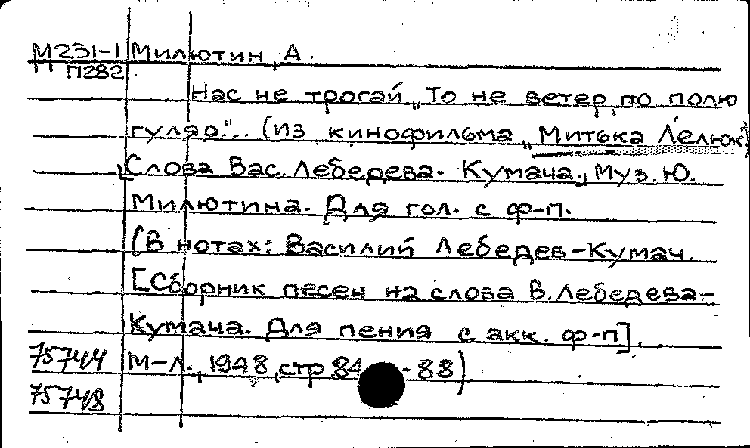 М231-1 Милютин, А.
П282
Нас не трогай „То не ветер по полю
гулял".. (Из кинофильма „Митька Лелюк")
[Слова Вас. Лебедева-Кумача., муз. Ю.
Милютина. Для гол. с ф-п.
(В нотах: Василий Лебедев-Кумач.
[Сборник песен на слова В. Лебедева-
Кумача. Для пения с акк. ф-п].
75744 М-Л., 1948, стр 84 - 88)
75748